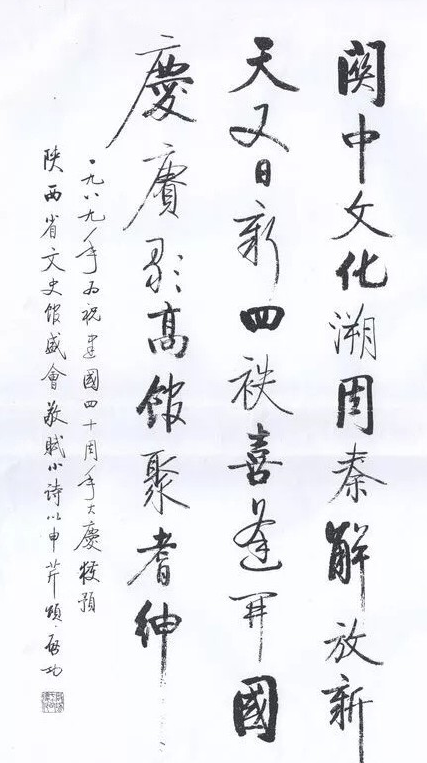 關中文化溯周秦解放新
天又日新四袟喜逢开國
慶賡歌高館聚耆紳
一九八九年為祝建國四十周年大慶獲預
陝西省文史館盛會敬賦小詩以申芹頌 啓功